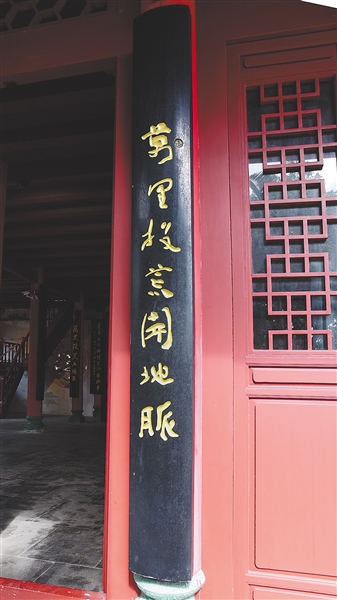 萬里投荒開地脈